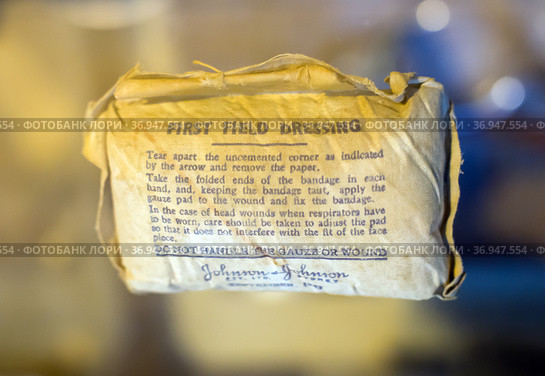 FIRST FIELD DRESSING
Tear apart the uncemented corner as indicated
by the arrow and remove the paper.
Take the folded ends of the bandage in each
hand, and, keeping the bandage taut, apply the
gauze pad to the wound and fix the bandage.
In the case of head wounds when respirators have
to be worn, care should be taken to adjust the pad
so that it does not interfere with the fit of the face
piece.
DO NOT HANDLE THE GAUZE OR WOUND
Johnson & Johnson
SYDNEY
554 - ФОТОБАНК ЛОРИ - 36.947.554 - ФОТОБАНК ЛОРИ - 36.947.554 - ФОТОБАНК ЛОРИ
554 - ФОТОБАНК ЛОРИ - 36.947.554 - ФОТОБАНК ЛОРИ - 36.947.554 - ФОТОБАНК ЛОРИ